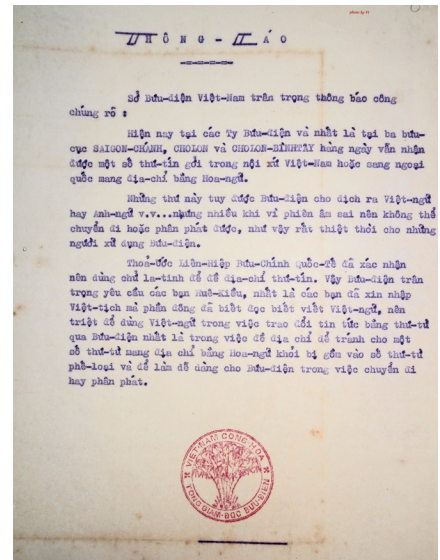 THÔNG-CÁO
Sở Bưu-điện Việt-Nam trân trọng thông báo công
chúng rõ :
Hiện nay tại các Ty Bưu-điện và nhất là tại ba bưu-
cục SAIGON-CHÁNH, CHOLON và CHOLON-BINHTAY hàng ngày vẫn nhận
được một số thư-tín gởi trong nội xứ Việt-Nam hoặc sang ngoại
quốc mang địa-chỉ bằng Hoa-ngữ.
Những thư này tuy được Bưu-điện cho dịch ra Việt-ngữ
hay Anh-ngữ v.v...nhưng nhiều khi vì phiên âm sai nên không thể
chuyển đi hoặc phân phát được, như vậy rất thiệt thòi cho những
người xử dụng Bưu-điện.
Thoả-Ước Liên-Hiệp Bưu-Chính Quốc-Tế đã xác nhận
nên dùng chữ la-tinh để đề địa-chỉ thư-tín. Vậy Bưu-điện trân
trọng yêu cầu các bạn Huê-Kiều, nhất là các bạn đã xin nhập
Việt-tịch mà phần đông đã biết đọc biết viết Việt-ngữ, nên
triệt để dùng Việt-ngữ trong việc trao đổi tin tức bằng thư-từ
qua Bưu-điện nhất là trong việc đề địa chỉ để tránh cho một
số thư-từ mang địa chỉ bằng Hoa-ngữ khỏi bị gồm vào số thư-từ
phế-loại và để làm dễ dàng cho Bưu-điện trong việc chuyển đi
hay phân phát.
VIỆT-NAM CỘNG-HÒA
TỔNG GIÁM-ĐỐC BƯU-ĐIỆN